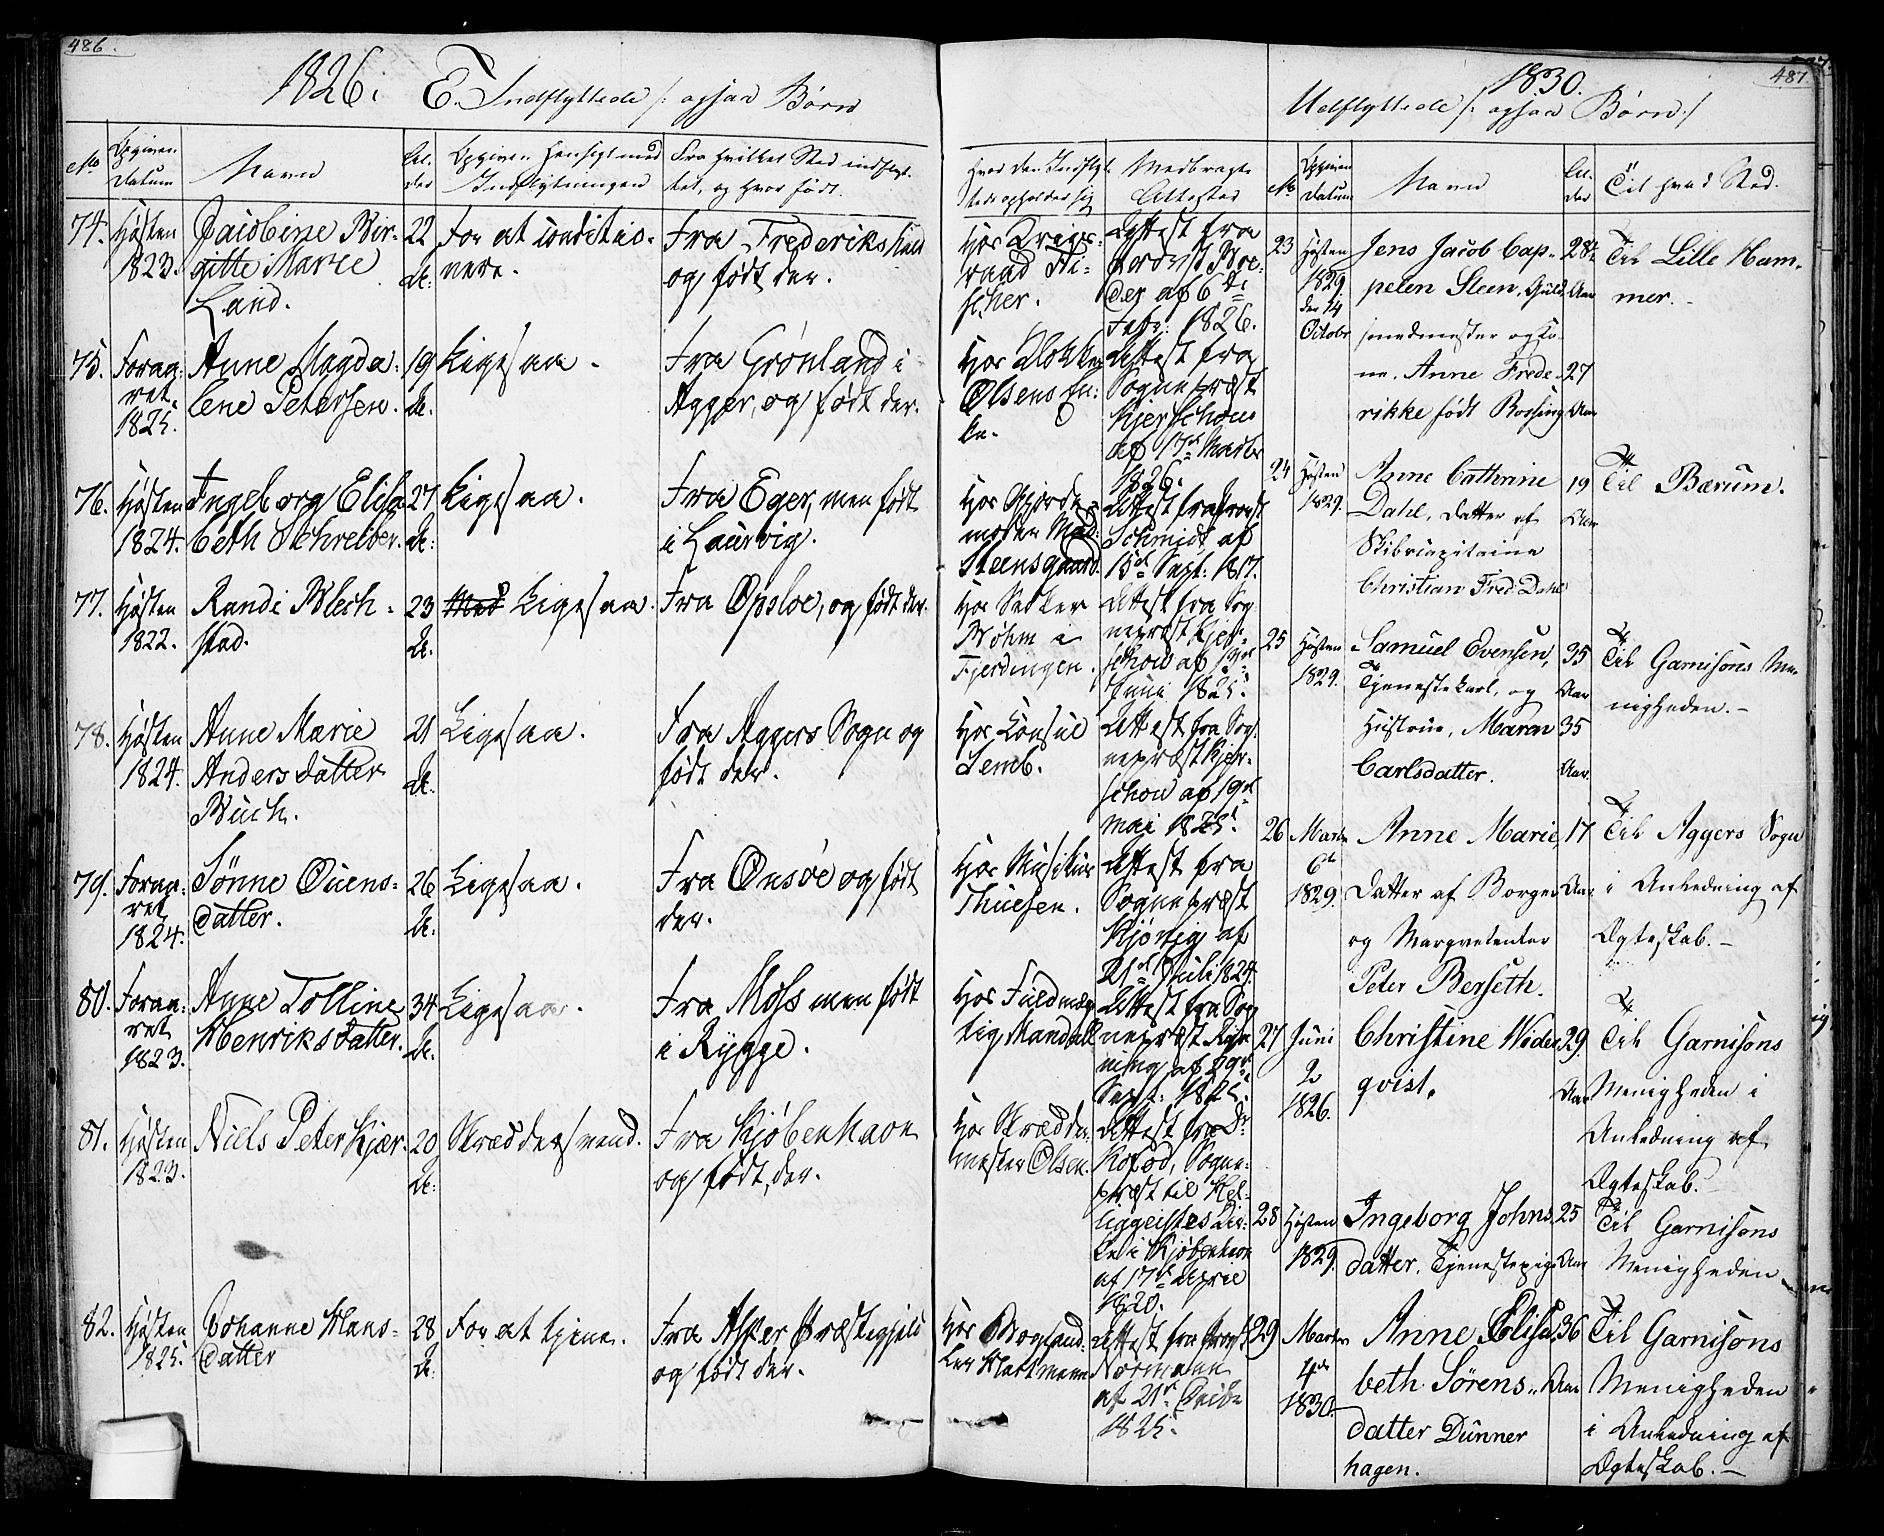 486.
1826. E. Indflyttede /: ogsaa Børn
No
Opgiven Datum
Navn
Al-
der
Opgiven Hensigt med
Indflytningen
Fra hvilket Sted indflyt-
tet, og hvor født.
Hvor den Indflyt-
tede opholder sig
Medbragte
Attester
74. Høsten 1823. Jacobine Bir-
gitte Marie
Land.
22 A:
For at conditio-
nere.
Fra Frederikshald
og født der.
Hos Krigs-
raad Fi-
scher.
Attest fra
Provst
af 6te
Febr: 1826.
75. Foraa-
ret
1825.
Anne Magda-
lene Petersen.
19 A:
Ligesaa.
Fra Grønland i
Agger, og født der.
Hos Klokker
Olsens En-
ke.
Attest fra
Sognepræst
Kjerschow
af 17de Marts
1826.
76. Høsten
1824.
Ingeborg Elisa-
beth Schreiber.
27 A:
Ligesaa.
Fra Eger, men født
i Laurvig.
Hos Gjorde-
moder Mad:
Steensgaard
Attest fra Provst
Schmidt af
15de Sept: 1817.
77. Høsten
1822.
Randi Blech-
stad.
23 A:
Med Ligesaa.
Fra Opsloe, og født der.
Hos
Bøhm i
Fjerdingen.
Attest fra Sog-
nepræst Kjer-
schow af
Juni 1825.
78. Høsten
1824.
Anne Marie
Andersdatter
Buch.
21 A:
Ligesaa.
Fra Aggers Sogn og
født der.
Hos Konsul
Semb.
Attest fra Sog-
nepræst Kjer-
schow af 19de
Mai 1825.
79. Foraa-
ret
1824.
Sønne Ouens-
datter.
26 A:
Ligesaa.
Fra Onsøe og født
der.
Hos Musikus
Thuesen.
Attest fra
Sognepræst
Kjønig af
21de Juli 1824.
80. Foraa-
ret
1823.
Anne Tolline
Henriksdatter.
34 A:
Ligesaa.
Fra Moss men født
i Rygge.
Hos Fuldmæg-
tig Mandall
Attest fra Sog-
nepræst
af 29de
Sept: 1825.
81. Høsten
1823.
Niels Peter Kjær.
20 A:
Skreddersvend.
Fra Kjøbenhavn
og født der.
Hos Skrædder-
mester Olsen.
Attest fra Dr
Kofod, Sogne-
præst til Hel-
liggeistes Kir-
ke i Kjøbenhavn
af 17de April
1820.
82. Høsten
1825.
Johanne Hans-
datter
28 A:
For at tjene.
Fra Asker Præstegjeld
og født der.
Hos Boghand-
ler Hartmann
Attest fra Provst
Normann
af 21de Octbr
1825.
1830. 487
Udflyttede /: ogsaa Børn :/
No
Opgiven
Datum
Navn
Al-
der
Til hvad Sted.
23 Høsten
1829
den 14
Octobr
Jens Jacob Cap-
pelen Steen, Guld-
smedmester og Ko-
ne, Anne Frede-
rikke født Rossing
28
Aar
27
Aar
Til Lille Ham-
mer.
24 Høsten
1829.
Anne Cathrine
Dahl, datter af
Skibscapitaine
Christian Fred: Dahl
19
Aar
Til Bærum.
25 Høsten
1829.
Samuel Evensen,
Tjenestekarl, og
Hustrue, Maren
Carlsdatter.
35
Aar
35
Aar
Til Garnisons Me-
nigheden.
26 Marts
6te
1829.
Anne Marie,
datter af Borger
og Marqvetenter
Peter Berseth.
17
Aar
Til Aggers Sogn
i Anledning af
Ægteskab.
27 Juni
2
1826.
Christine Weder-
qvist.
29
Aar
Til Garnisons
Menigheden i
Anledning af
Ægteskab.
28 Høsten
1829.
Ingeborg Johns-
datter, Tjenestepige
25
Aar
Til Garnisons
Menigheden
29 Marts
4de
1830.
Anne Elisa-
beth Sørens-
datter Dünner
hagen.
36
Aar
Til Garnisons
Menigheden
i Anledning af
Ægteskab.